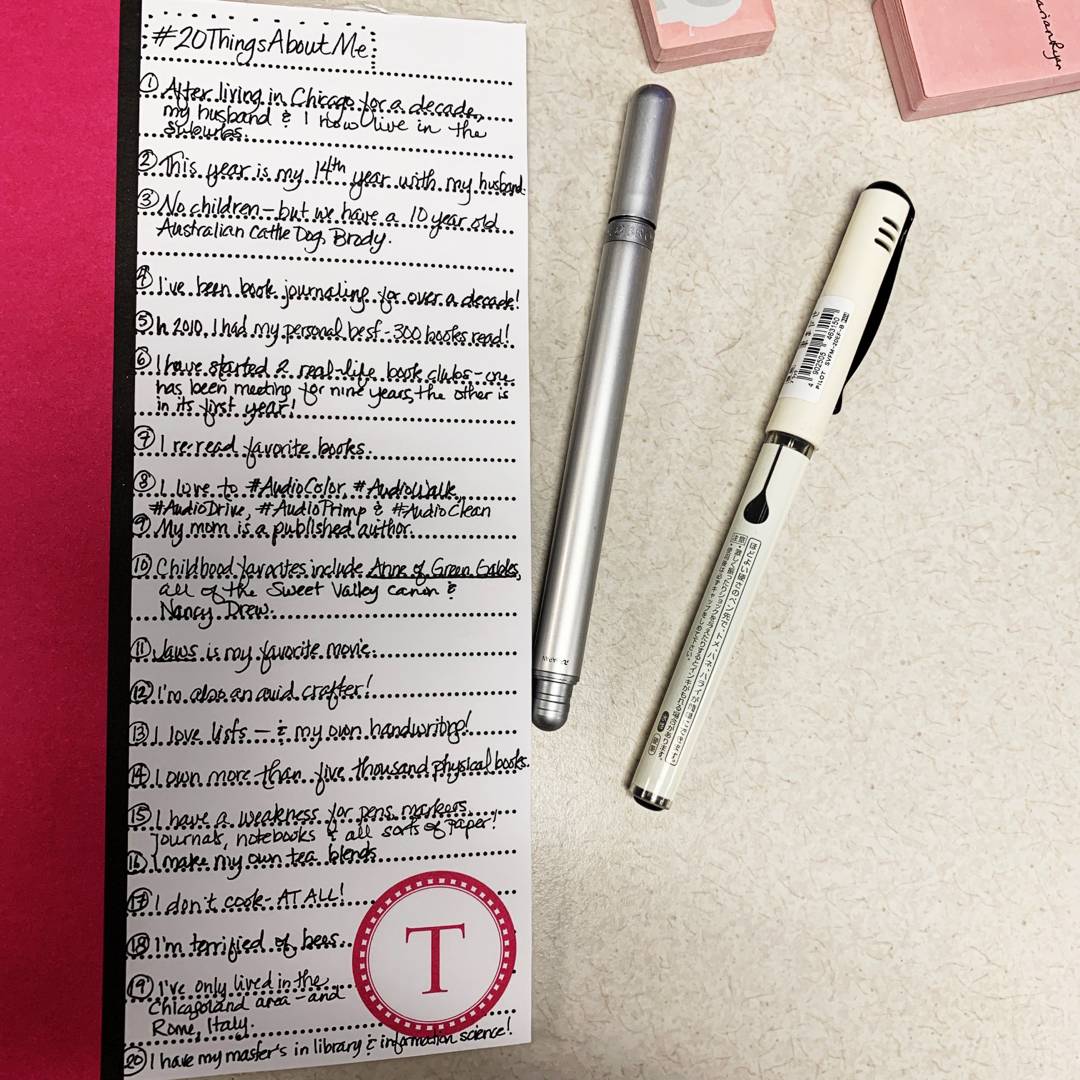 #20ThingsAboutMe
① After living in Chicago for a decade,
my husband & I now live in the
suburbs.
② This year is my 14th year with my husband.
③ No children - but we have a 10 year old
Australian Cattle Dog, Brody.
④ I've been book journaling for over a decade!
⑤ In 2010, I had my personal best - 300 books read!
⑥ I have started 2 real-life book clubs - one
has been meeting for nine years, the other is
in its first year!
⑦ I re-read favorite books.
⑧ I love to #AudioColor, #AudioWalk,
#AudioDrive, #AudioPrimp & #AudioClean
⑨ My mom is a published author.
⑩ Childhood favorites include Anne of Green Gables,
all of the Sweet Valley canon &
Nancy Drew.
⑪ Jaws is my favorite movie.
⑫ I'm also an avid crafter!
⑬ I love lists - & my own handwriting!
⑭ I own more than five thousand physical books.
⑮ I have a weakness for pens, markers,
journals, notebooks & all sorts of paper!
⑯ I make my own tea blends
⑰ I don't cook - AT ALL!
⑱ I'm terrified of bees.
⑲ I've only lived in the
Chicagoland area - and
Rome, Italy.
⑳ I have my master's in library & information science!
T
4 902505 463150
PILOT SVFM-20EF-B
ほどよい硬さのペン先で、トメ・ハネ・ハライが